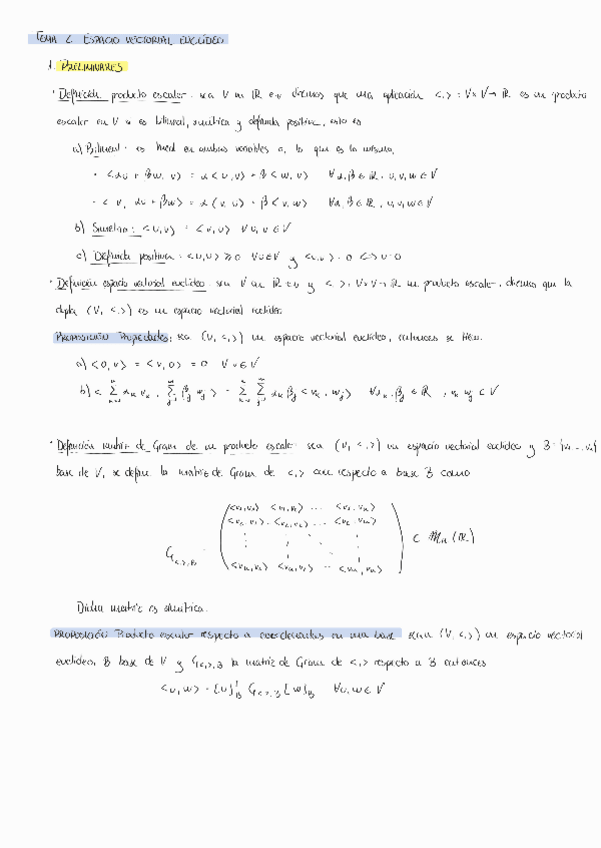 TEMA 2 ESPACIO VECTORIAL EUCLÍDEO
1. PRELIMINARES
· Definición producto escalar: sea V un ℝ e.v. diremos que una aplicación <,> : V×V → ℝ es un producto
escalar en V si es bilineal, simétrica y definida positiva, esto es
a) Bilineal: es lineal en ambas variables o, lo que es lo mismo,
· <αu + βw, v> = α<u,v> + β<w,v> ∀α,β ∈ ℝ, u,v,w ∈ V
· <v, αu + βw> = α<v,u> + β<v,w> ∀α,β ∈ ℝ, u,v,w ∈ V
b) Simétrica: <u,v> = <v,u> ∀u,v ∈ V
c) Definida positiva: <u,u> ≥ 0 ∀u ∈ V y <u,u> = 0 <=> u=0
· Definición espacio vectorial euclídeo: sea V un ℝ e.v y <,> : V×V → ℝ un producto escalar, diremos que la
dupla (V, <,>) es un espacio vectorial euclídeo.
PROPOSICIÓN Propiedades: sea (V, <,>) un espacio vectorial euclídeo, entonces se tiene:
a) <0,v> = <v,0> = 0 ∀v ∈ V
b) < Σ αₖ vₖ , Σ βⱼ wⱼ > = Σ Σ αₖ βⱼ <vₖ, wⱼ> ∀αₖ, βⱼ ∈ ℝ, vₖ, wⱼ ∈ V
· Definición matriz de Gram de un producto escalar: sea (V, <,>) un espacio vectorial euclídeo y B = {v₁ ... vₙ}
base de V, se define la matriz de Gram de <,> con respecto a base B como
<v₁,v₁> <v₁,v₂> ... <v₁,vₙ>
<v₂,v₁> <v₂,v₂> ... <v₂,vₙ>
⋮ ⋮ ⋱ ⋮
G<,>,B = <vₙ,v₁> <vₙ,v₂> ... <vₙ,vₙ> ∈ Mₙ(ℝ)
Dicha matriz es simétrica.
PROPOSICIÓN: Producto escalar respecto a coordenadas en una base sean (V, <,>) un espacio vectorial
euclídeo, B base de V y G<,>,B la matriz de Gram de <,> respecto a B entonces
<u,w> = [u]ᵗB G<,>,B [w]B ∀u,w ∈ V